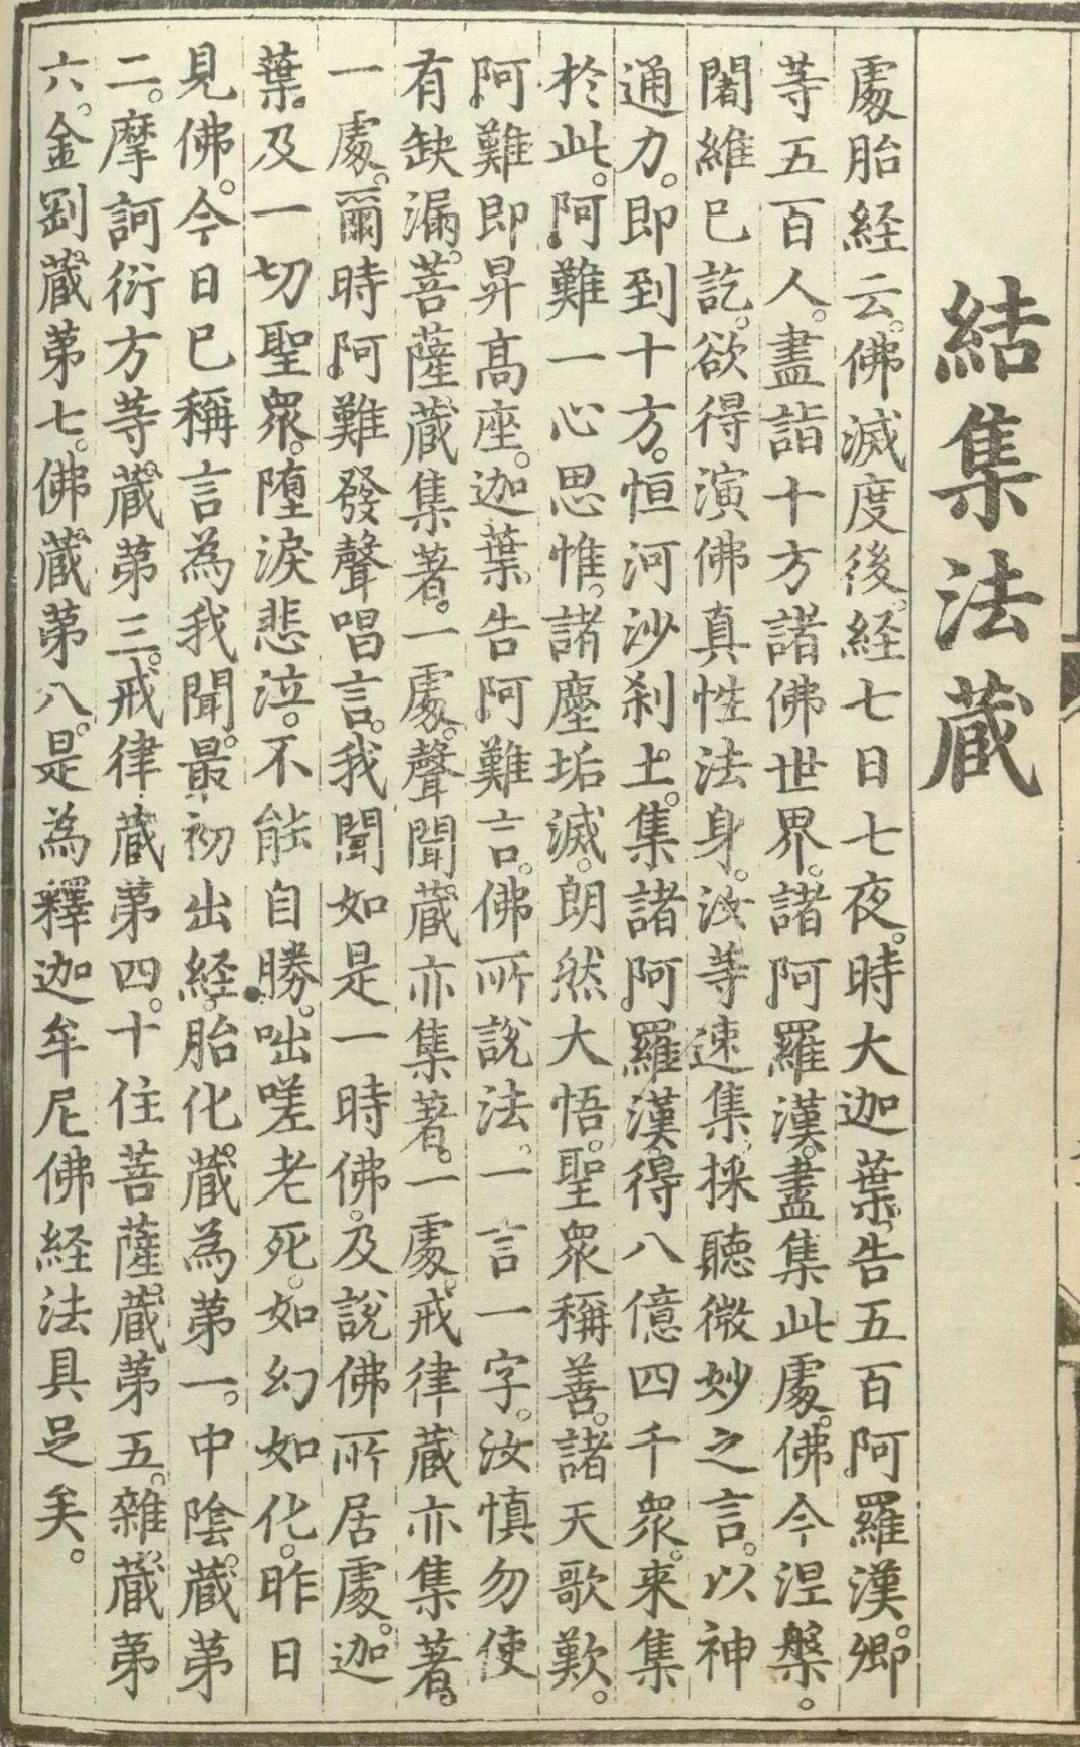 結集法蔵
處胎経云。佛滅度後。経七日七夜。時大迦葉。告五百阿羅漢。卿
等五百人。盡詣十方諸佛世界。諸阿羅漢。盡集此處。佛今涅槃。
闍維已訖。欲得演佛真性法身。汝等速集。採聽微妙之言。以神
通力。即到十方。恒河沙刹土。集諸阿羅漢。得八億四千衆。来集
於此。阿難一心思惟。諸塵垢滅。朗然大悟。聖衆稱善。諸天歌歎。
阿難即昇高座。迦葉告阿難言。佛所說法。一言一字。汝慎勿使
有缺漏。菩薩蔵集著。一處。聲聞蔵亦集著。一處。戒律蔵亦集著。
一處。爾時阿難發聲唱言。我聞如是一時佛。及說佛所居處。迦
葉。及一切聖衆。堕淚悲泣。不能自勝。咄嗟老死。如幻如化。昨日
見佛。今日已稱言為我聞。最初出経。胎化。蔵為第一。中陰。蔵第
二。摩訶衍方等。蔵第三。戒律蔵第四。十住菩薩。蔵第五。雜蔵第
六。金剛蔵第七。佛蔵第八。是為釋迦牟尼佛経法具足矣。